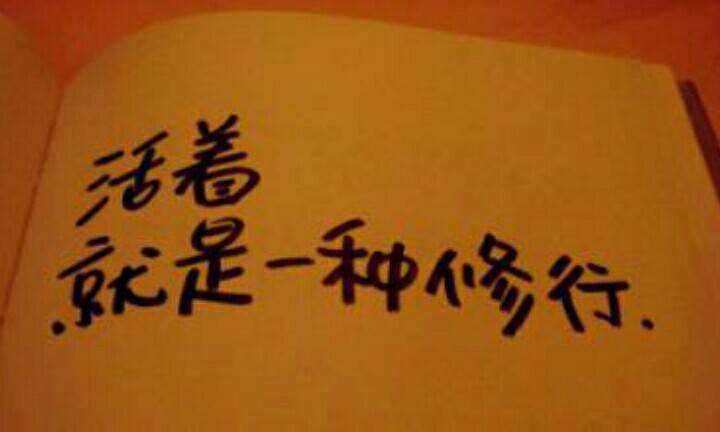 活着
就是一种修行.